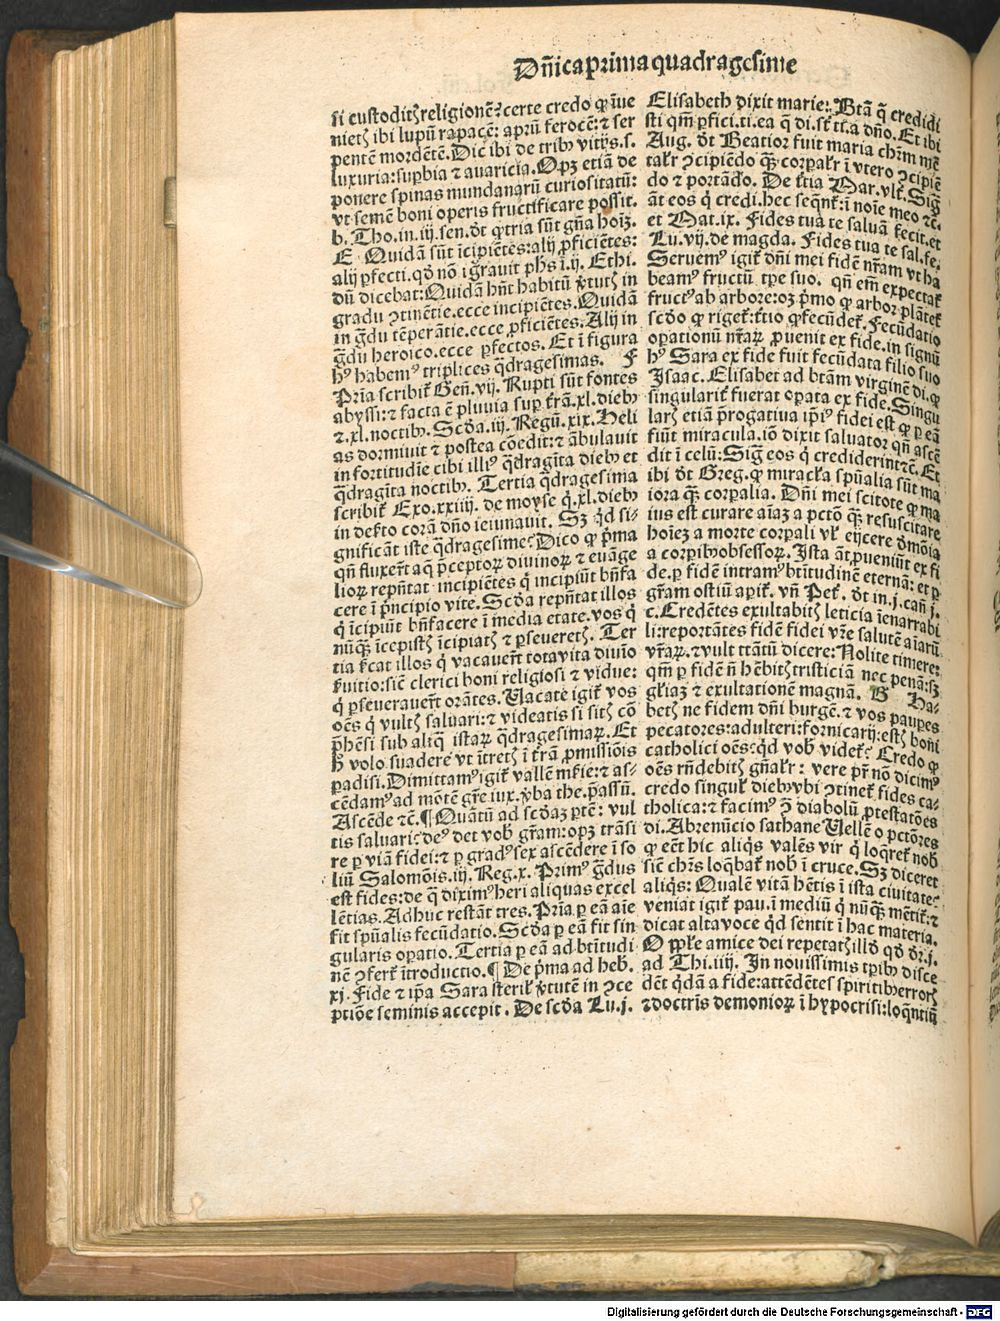 Dñica prima quadragesime
si custodit religionē? certe credo ꝙ inue
nietꝭ ibi lupū rapacē: aprū ferocē: ⁊ ser
pentē mordētē. Dic ibi de tribꝰ vitijs. s.
luxuria: supbia ⁊ auaricia. Opꝫ etiā de
ponere spinas mundanarū curiositatū:
vt semē boni operis fructificare possit.
b. Tho. in. iij. sen. dt̄ ꝙ tria sūt gn̄a hoīꝫ.
E Quidā sūt īcipiētes: alij ꝓficiētes:
alij ꝑfecti. qd̄ nō īgrauit phs̄ ī. ij. Ethi.
dū dicebat: Quidā hn̄t habitū ṽtutꝭ in
gradu ꝯtinētie. ecce incipiētes. Quidā
in g̃du tēperātie. ecce ꝓficiētes. Alij in
g̃du heroico. ecce ꝑfectos. Et ī figura
hꝰ habemꝰ triplices q̃dragesimas. F
Pria scribit̃ Gen̄. vij. Rupti sūt fontes
abyssi: ⁊ facta ē pluuia sup t̃rā. xl. diebꝰ
⁊. xl. noctibꝰ. Scd̄a. iij. Regū. xix. Heli
as dormiuit ⁊ postea cōedit: ⁊ ābulauit
in fortitudīe cibi illiꝰ q̃dragīta diebꝰ et
q̃dragīta noctibꝰ. Tertia q̃dragesima
scribit̃ Exo. xxiiij. de moyse q̇. xl. diebꝰ
in def̃to corā dn̄o ieiunauit. Sꝫ qd̄ si⸗
gnificāt iste q̃dragesime? Dico ꝙ p̄ma
qn̄ fluxer̄t aq̄ p̄ceptoꝝ diuinoꝝ ⁊ euāge
lioꝝ repn̄tat incipiētes q̇ incipiūt bn̄fa
cere ī p̄ncipio vite. Scd̄a repn̄tat illos
q̇ īcipiūt bn̄facere ī media etate. vos q̇
nūꝙ̄ īcepistꝭ īcipiatꝭ ⁊ ꝑseueretꝭ. Ter
tia f̃cat illos q̇ vacauer̄t tota vita diuīo
ẜuitio: sic̄ clerici boni religiosi ⁊ vidue:
q̇ ꝑseuerauer̄t orātes. Vacate igit̃ vos
oēs q̇ vultꝭ saluari: ⁊ videatis si sitꝭ cō
p̄hēsi sub aliq̄ istaꝝ q̃dragesimaꝝ. Et
h̄ volo suadere vt ītretꝭ ī t̃rā ꝓmissiōis
padisi. Dimittamꝰ igit̃ vallē mr̄ie: ⁊ as⸗
cēdamꝰ ad mōtē gr̄e iux. ṽba the. passū.
Ascēde ⁊c. ¶ Quātū ad scd̄aꝫ ꝑtē: vul
tis saluari: deꝰ det vob̄ gr̄am: opꝫ trāsi
re ꝑ viā fidei: ⁊ ꝑ gradꝰ sex ascēdere ī so
liū Salomōis. iij. Reg. x. Primꝰ g̃dus
est fides: de q̄ diximꝰ heri aliquas excel
lētias. Adhuc restāt tres. Pria ꝑ eā aīe
fit spūalis fecūdatio. Scd̄a ꝑ eā fit sin
gularis opatio. Tertia ꝑ eā ad btītudi
nē ꝯfert̃ ītroductio. ¶ De p̄ma ad heb̄.
xj. Fide ⁊ ip̄a Sara steril̄ ṽtutē in ꝯce
ptiōe seminis accepit. De scd̄a Lu. j.
Elisabeth dixit marie: Btā q̄ credidi
sti qm̄ ꝑfici. ti. ea q̄ di. st̄ ti. a dn̄o. Et ibi
Aug. dt̄ Beatior fuit maria chr̄m mē
tal̄r ꝯcipiēdo ꝙ̄ corpal̄r ī vtero ꝯcipiē
do ⁊ portādo. De t̃tia Mar. vlt̄. Sig
āt eos q̇ credi. hec seqn̄t̃: ī noīe meo ⁊c.
et Mat. ix. Fides tua te saluā fecit. et
Lu. vij. de magda. Fides tua te sal. fe.
Seruemꝰ igit̃ dn̄i mei fidē nr̄am vt ha
beamꝰ fructū tp̄e suo. qn̄ em̄ expectat̃
fructꝰ ab arbore: oꝫ p̄mo ꝙ arbor plātet̃
scd̄o ꝙ riget̃: t̃tio ꝙ fecūdet̃. Fecūdatio
opationū nr̄aꝝ ꝓuenit ex fide. in signū
hꝰ Sara ex fide fuit fecūdata filio suo
Isaac. Elisabet ad btām virginē di. ꝙ
singularit̃ fuerat opata ex fide. Singu
larꝭ etiā p̄rogatiua ip̄iꝰ fidei est ꝙ ꝑ eā
fiūt miracula. iō dixit saluator qn̄ ascē
dit ī celū: Sig̃ eos q̇ crediderint ⁊c. Et
ibi dt̄ Greg. ꝙ miracl̄a spūalia sūt ma
iora ꝙ̄ corpalia. Dn̄i mei scitote ꝙ ma
ius est curare aīaꝫ a pctō ꝙ̄ resuscitare
hoīeꝫ a morte corpali vl̄ eijcere d̄mōia
a corpibꝰ obsessoꝝ. Ista āt ꝓueniūt ex fi
de. ꝑ fidē intramꝰ btītudinē eternā: et ꝑ
gr̄am ostiū apit̃. vn̄ Pet̃. dt̄ in. j. can̄ j.
c. Credētes exultabitꝭ leticia īenarrabi
li: reportātes fidē fidei vr̄e salutē aīarū
vr̄aꝝ. ⁊ vult tātū dicere: Nolite timere:
qm̄ ꝑ fidē n̄ hēbitꝭ tristiciā nec penā: sꝫ
gl̄iaꝫ ⁊ exultationē magnā. G Ha⸗
betꝭ ne fidem dn̄i burgē. ⁊ vos paupes
pecatores: adulteri: fornicarij: estꝭ boni
catholici oēs: qd̄ vob̄ videt̃? Credo ꝙ
oēs rn̄debitꝭ gn̄al̄r: vere pr̄ nō dicimꝰ
credo singul̄ diebꝰ vbi ꝯtinet̃ fides ca⸗
tholica: ⁊ facimꝰ ꝯ̄ diabolū ꝓtestatōes
di. Abrenūcio sathane Vellē o pctōres
ꝙ eēt hic aliq̇s valēs vir q̇ loq̄ret̃ nob̄
sic̄ chr̄s loq̄bat̃ nob̄ ī cruce. Sꝫ diceret
aliq̇s: Qualē vitā hētis ī ista ciuitate?
veniat igit̃ pau. ī mediū q̇ nūꝙ̄ mētit̃: ⁊
dicat alta voce qd̄ sentit ī hac materia.
O ppl̄e amice dei repetatꝭ illd̄ qd̄ dr̄. j.
ad Thi. iiij. In nouissimis tp̄ibꝰ disce
dēt q̇dā a fide: attēdētes spiritibꝰ errorꝭ
⁊ doctrīs demonioꝝ ī hypocrisi: loq̄ntiū
Digitalisierung gefördert durch die Deutsche Forschungsgemeinschaft - DFG